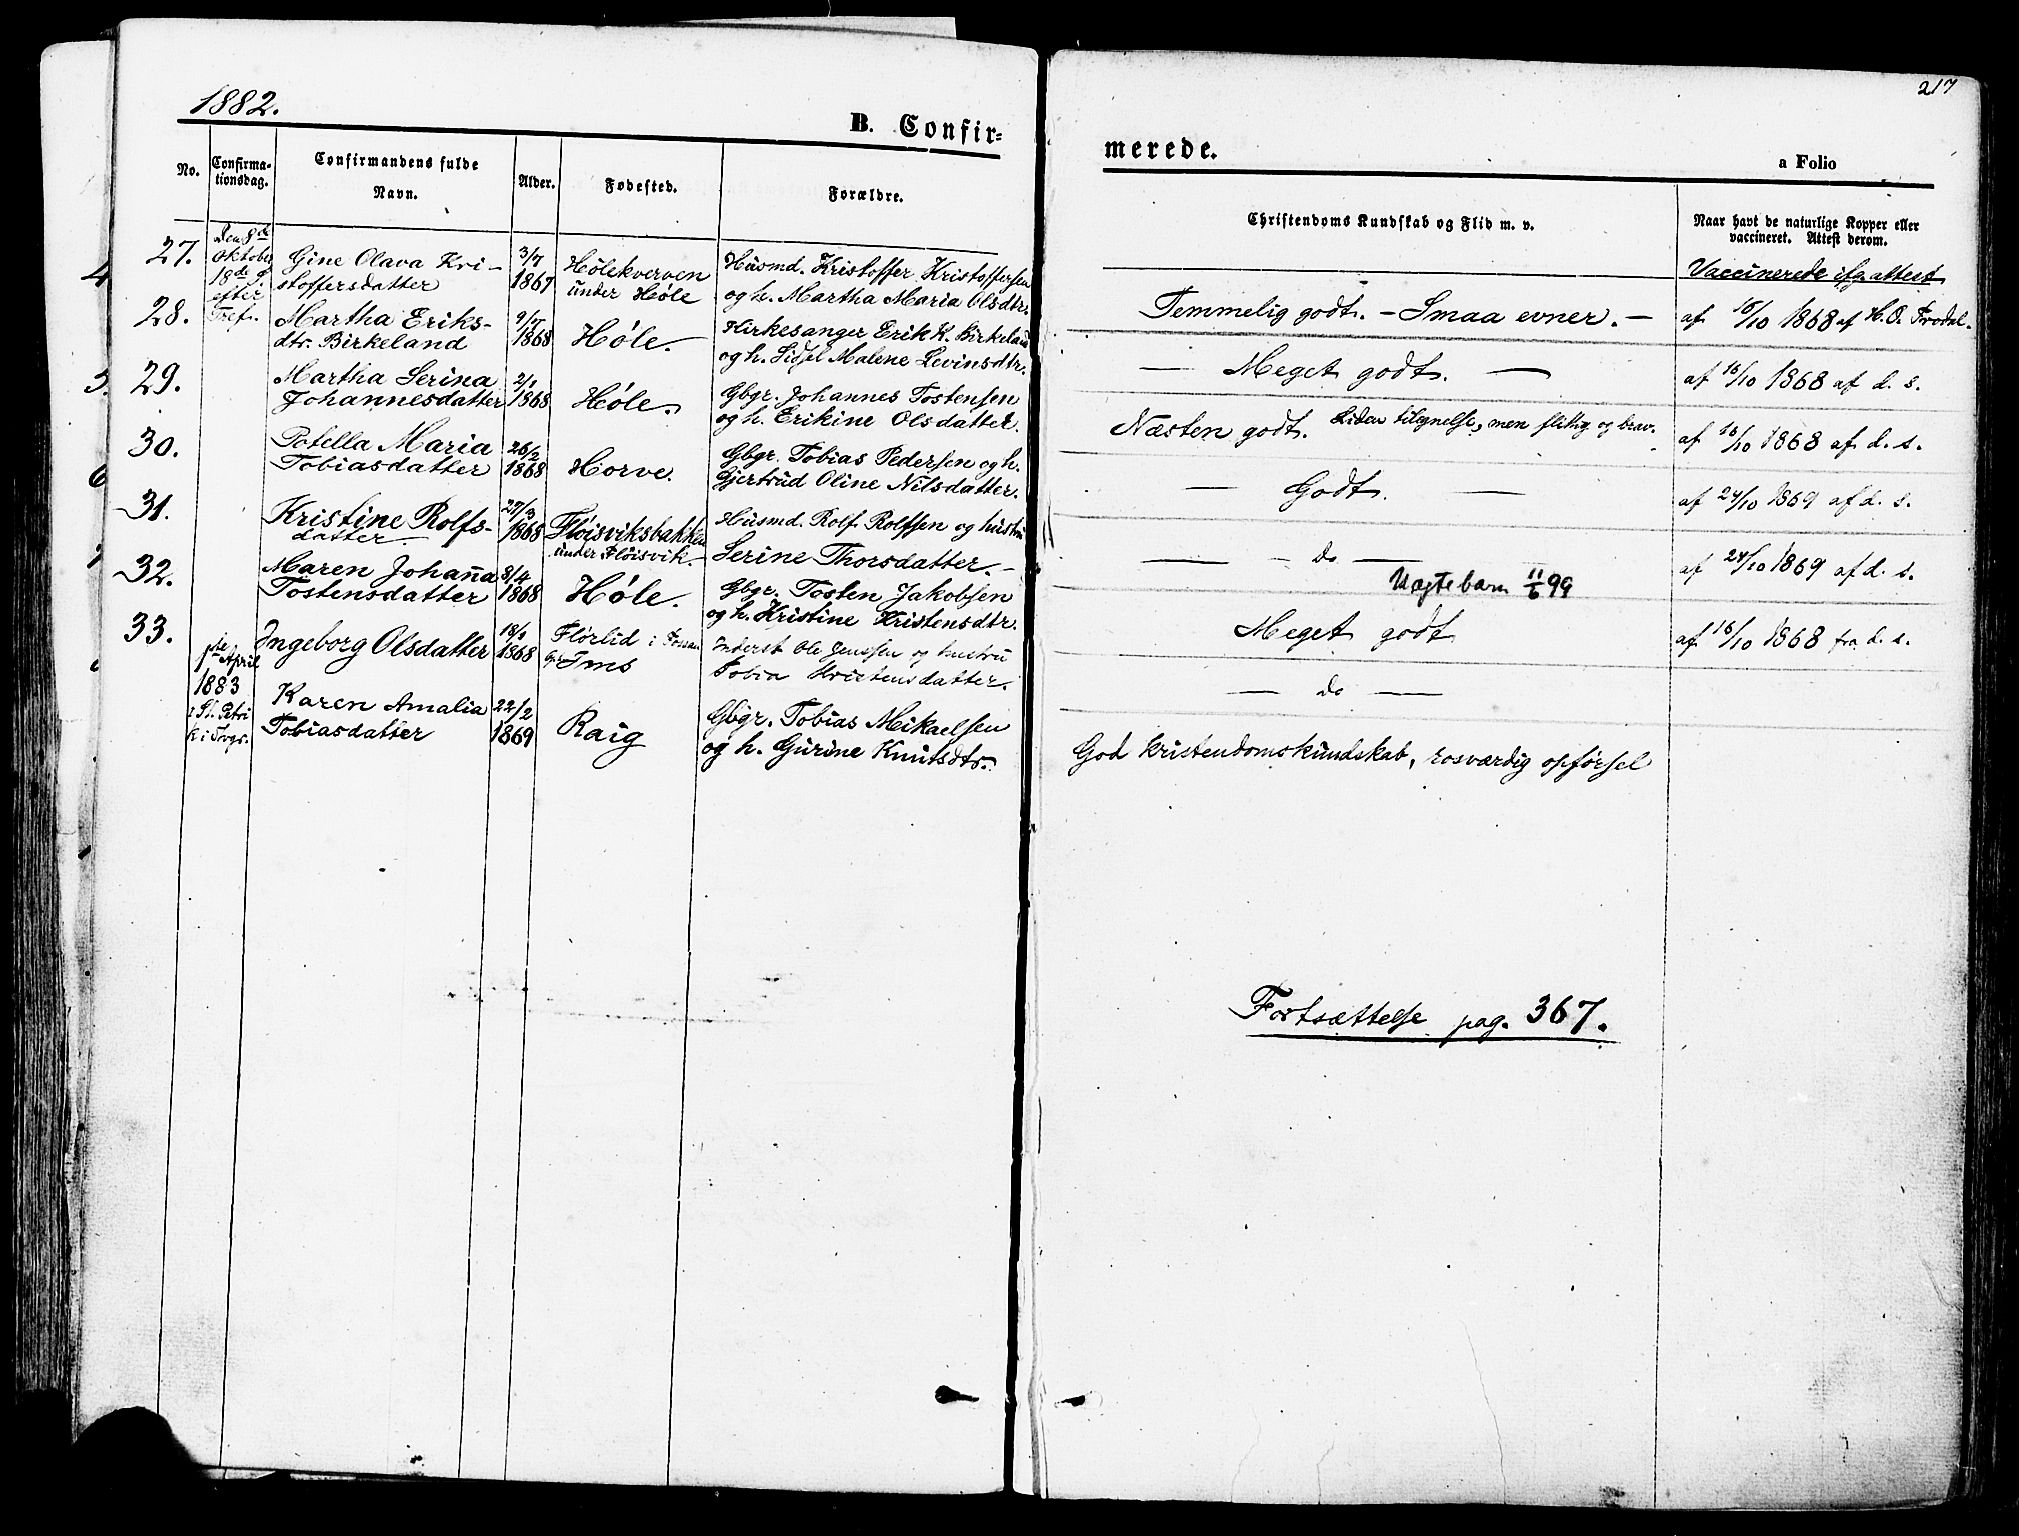 1882.
217
B. Confir=
merede.
a Folio
No.
Confirma-
tionsdag.
Confirmandens fulde
Navn.
Alder.
Fødested.
Forældre.
Christendoms Kundskab og Flid m. v.
Naar havt de naturlige Kopper eller
vaccineret. Attest derom.
Vaccinerede ifg. attest
27.
Den 8de
Oktober
18de S.
efter
Tref.
Gine Olava Kri-
stoffersdatter
3/7
1867
Hølekverven
under Høle
Husmd. Kristoffer Kristoffersen
og h. Martha Maria Olsdtr.
Temmelig godt. – Smaa evner. –
af 16/10 1868 af H. O.
28.
Martha Eriks-
dtr. Birkeland
9/7
1868
Høle.
Kirkesanger Erik K. Birkeland
og h. Sidsel Malene Levinsdtr.
— Meget godt. —
af 16/10 1868 af d. s.
29.
Martha Serina
Johannesdatter
2/1
1868
Høle.
Gbgr. Johannes Tostensen
og h. Erikine Olsdatter.
Næsten godt. Liden tilegnelse, men flittig og brav.
af 16/10 1868 af d. s.
30.
Maria
Tobiasdatter
26/2
1868
Horve.
Gbgr. Tobias Pedersen og h.
Gjertrud Oline Nilsdatter.
— Godt. —
af 24/10 1869 af d. s.
31.
Kristine Rolfs-
datter
27/3
1868
Fløisviksbakken
under Fløisvik.
Husmd. Rolf Rolfsen og hustru
Serine Thorsdatter. –
— do —
af 24/10 1869 af d. s.
32.
Maren Johanna
Tostensdatter
8/4
1868
Høle.
Gbgr. Tosten Jakobsen
og h. Kristine Kristensdtr.
Uægte barn 11/6 99
Meget godt
af 16/10 1868 fra d. s.
33.
Ingeborg Olsdatter
18/1
1868
Flørlid i Fossan
Ims
Inderst Ole Jenssen og hustru
Tobia Kristensdatter.
— do —
1ste April
1883
i St. Petri
k i Svgr.
Karen Amalia
Tobiasdatter
22/2
1869
Raig
Gbgr. Tobias Mikaelsen
og h. Gurine Knutsdtr.
God kristendomskundskab, rosværdig opførsel
Fortsættelse pag. 367.